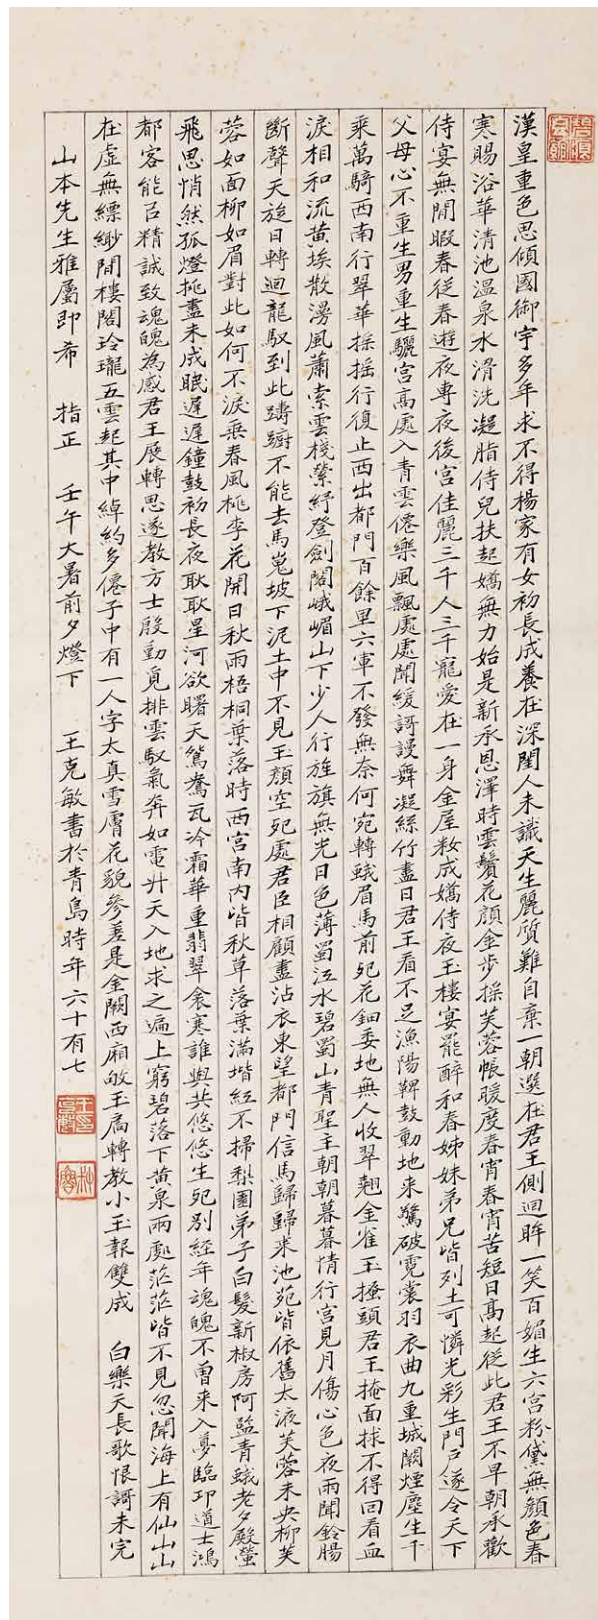 漢皇重色思傾國御宇多年求不得楊家有女初長成養在深閨人未識天生麗質難自棄一朝選在君王側迴眸一笑百媚生六宮粉黛無顏色春
寒賜浴華清池溫泉水滑洗凝脂侍兒扶起嬌無力始是新承恩澤時雲鬢花顏金步搖芙蓉帳暖度春宵春宵苦短日高起從此君王不早朝承歡
侍宴無閒暇春從春遊夜專夜後宮佳麗三千人三千寵愛在一身金屋妝成嬌侍夜玉樓宴罷醉和春姊妹弟兄皆列土可憐光彩生門戶遂令天下
父母心不重生男重生驪宮高處入青雲僊樂風飄處處聞緩謌謾舞凝絲竹盡日君王看不足漁陽鞞鼓動地来驚破霓裳羽衣曲九重城闕煙塵生千
乘萬騎西南行翠華搖搖行復止西出都門百餘里六軍不發無奈何宛轉蛾眉馬前死花鈿委地無人收翠翹金雀玉搔頭君王掩面捄不得回看血
淚相和流黃埃散漫風蕭索雲棧縈紆登劍閣峨嵋山下少人行旌旗無光日色薄蜀江水碧蜀山青聖主朝朝暮暮情行宮見月傷心色夜雨聞鈴腸
斷聲天旋日轉迴龍馭到此躊躇不能去馬嵬坡下泥土中不見玉顏空死處君臣相顧盡沾衣東望都門信馬歸歸来池苑皆依舊太液芙蓉未央柳芙
蓉如面柳如眉對此如何不淚垂春風桃李花開日秋雨梧桐葉落時西宮南內皆秋草落葉滿堦紅不掃梨園弟子白髮新椒房阿監青蛾老夕殿螢
飛思悄然孤燈挑盡未成眠遲遲鐘鼓初長夜耿耿星河欲曙天鴛鴦瓦冷霜華重翡翠衾寒誰與共悠悠生死別經年魂魄不曾来入夢臨邛道士鴻
都客能召精誠致魂魄為感君王展轉思遂教方士殷勤覓排雲馭氣奔如電升天入地求之遍上窮碧落下黃泉兩處茫茫皆不見忽聞海上有仙山山
在虛無縹緲間樓閣玲瓏五雲起其中綽約多僊子中有一人字太真雪膚花貌參差是金闕西廂敂玉扃轉教小玉報雙成 白樂天長歌恨謌未完
山本先生雅屬即希 指正 壬午大暑前夕燈下 王克敏書於青島時年六十有七